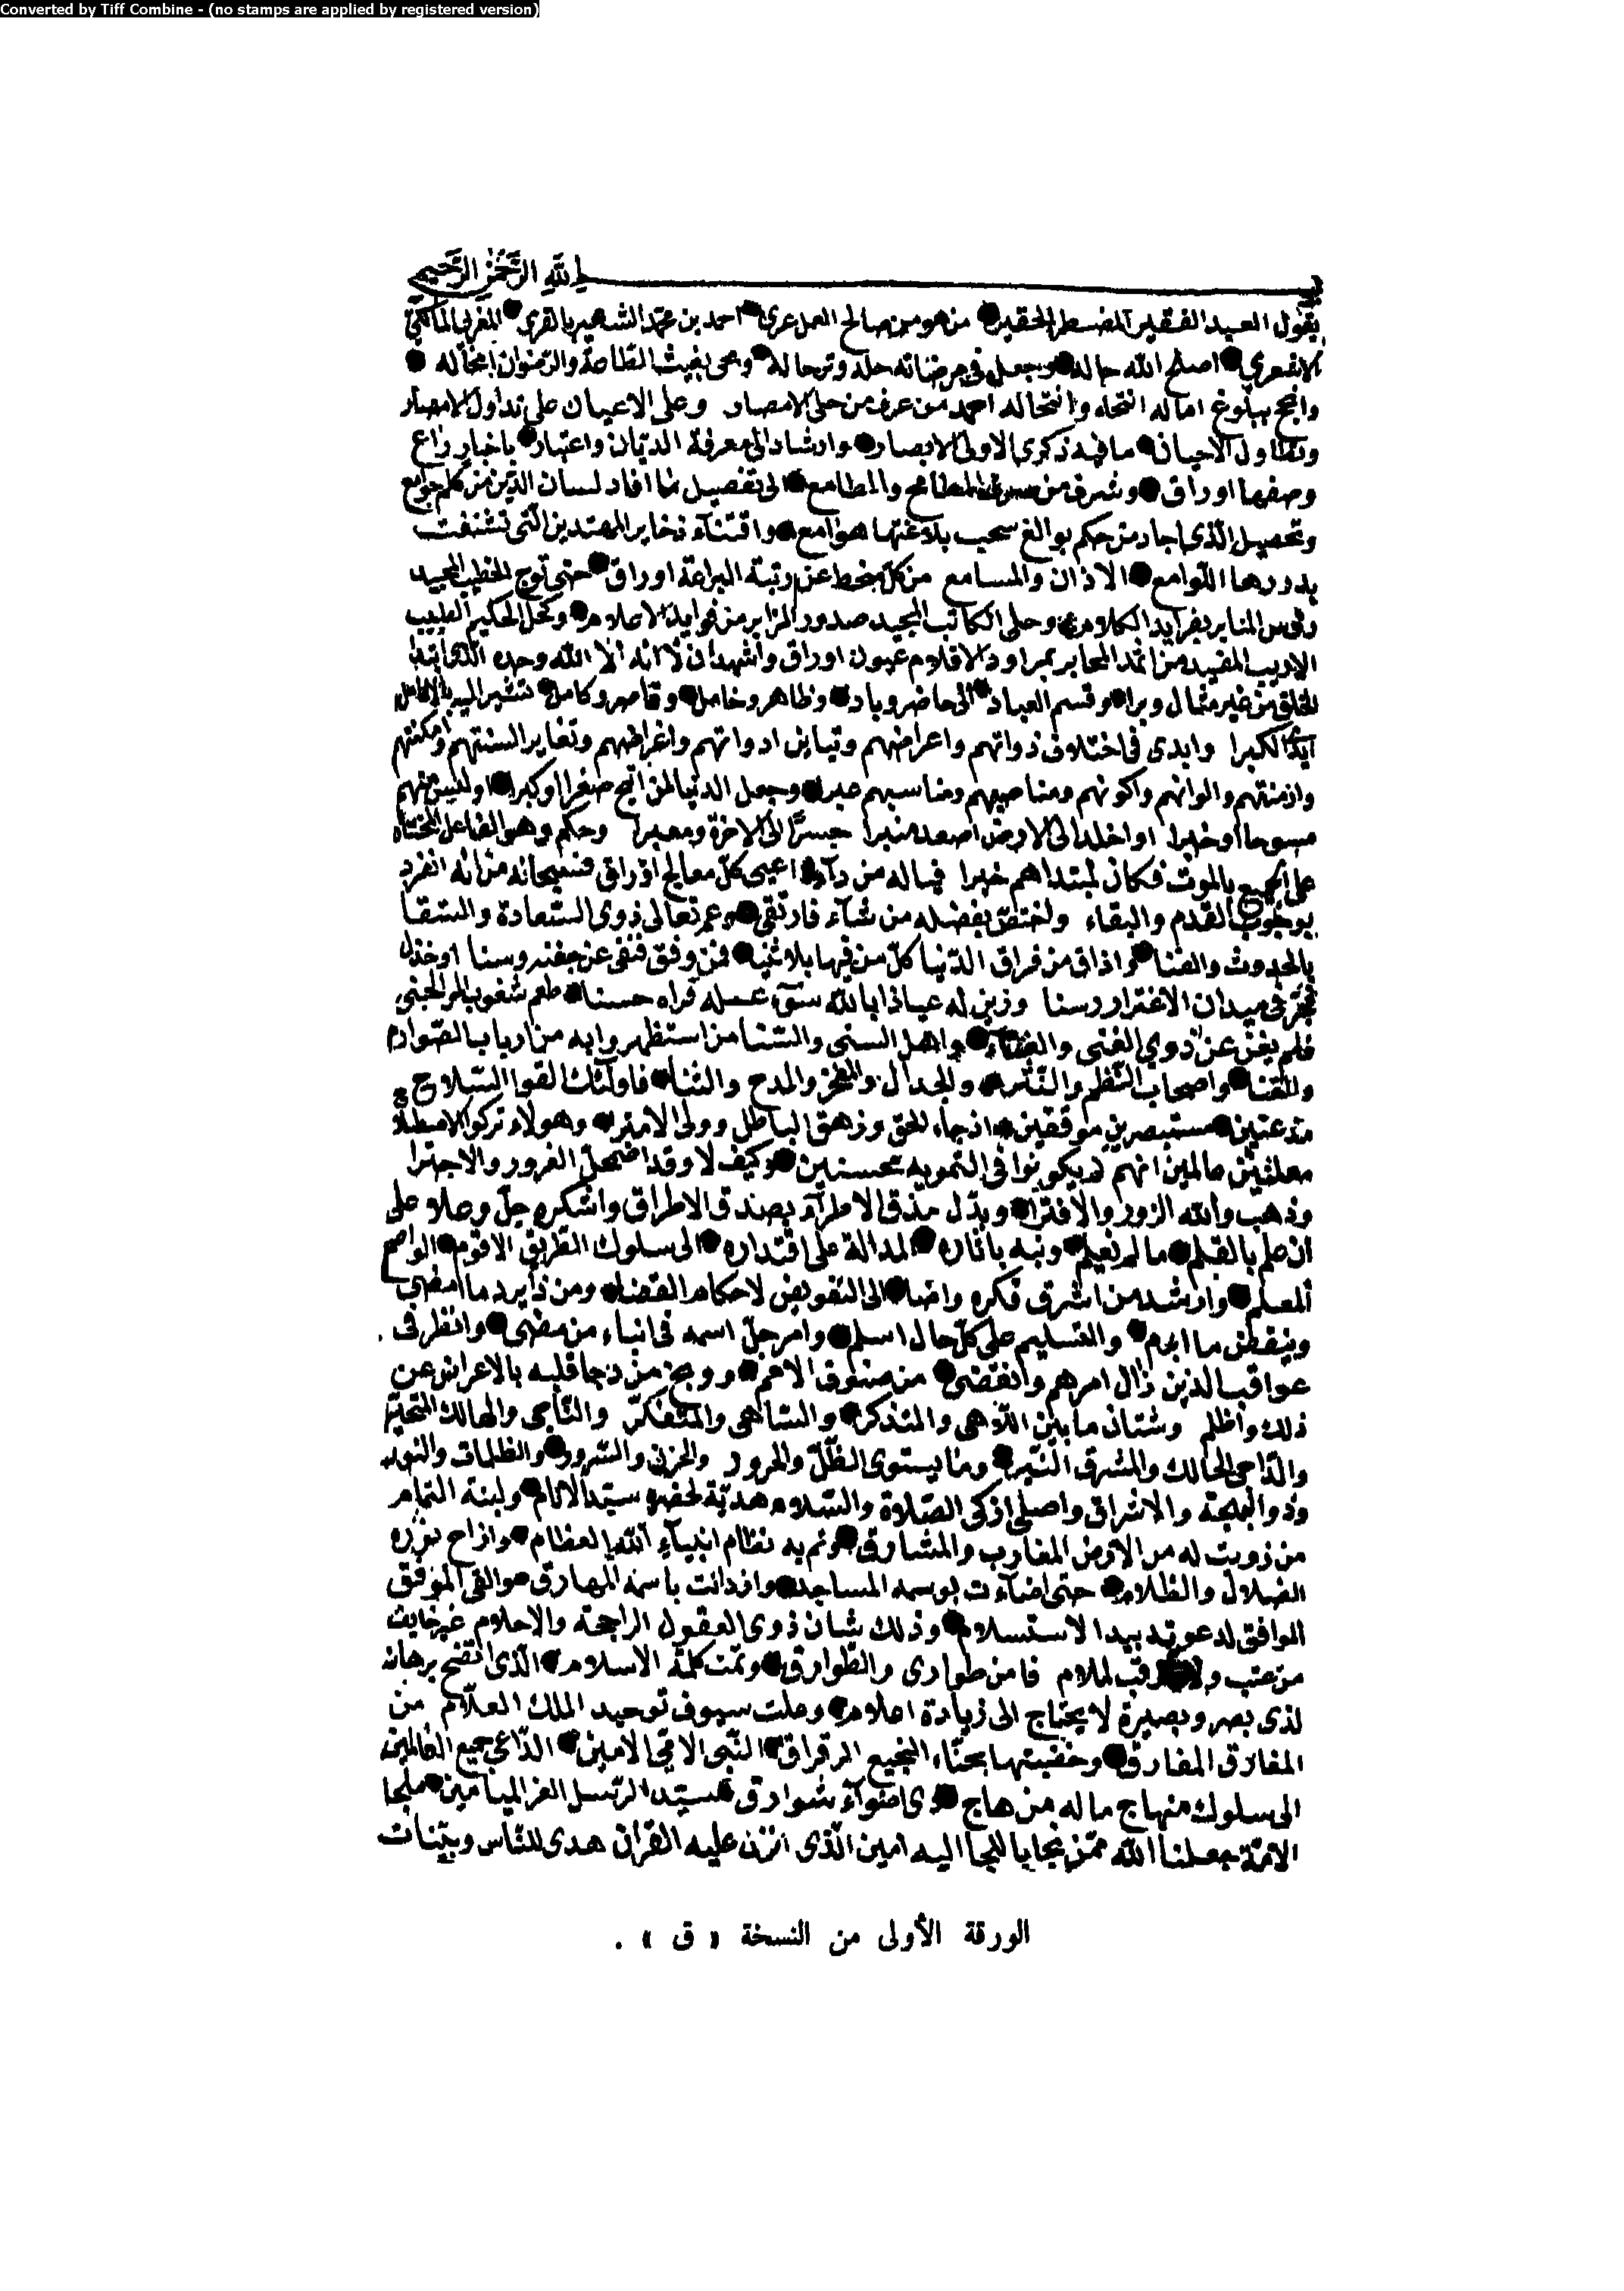 Converted by Tiff Combine - (no stamps are applied by registered version)
بسم الله الرحمن الرحيم
يقول العبد الفقير المضطر الحقير من هو من صالح العمل عري احمد بن محمد الشهير بالمقري المغربي المالكي
الاشعري اصلح الله حاله وجعل في مرضاته حله وترحاله ومحى بغيث الطاعة والرضوان امحاله
وانجح ببلوغ اماله انتحاه وانتحاله احمد من عرف من حلى الامصار وعلى الاعيان على تداول الاعصار
وتطاول الاحيان ما فيه ذكرى لاولى الابصار وارشاد الى معرفة الديان واعتبار باخبار راع
وصفها اوراق وشرف من المطامح والمطامع الى تفصيل ما افاد لسان الدين من كلم جوامع
وتحصيل الذي اجاد من حكم بوالغ سحب بلاغتها هوامع واقتناء ذخاير المهتدين التي تشنفت
بدررها اللوامع الاذان والمسامع من كل منحط عن رتبة البراعة اوراق حتى توج الخطيب المجيد
رؤس المنابر بفرايد الكلام وحلى الكاتب المجيد صدور المزابر من فوايد الاعلام وكحل الحكيم الطبيب
الاديب المفيد من اثمد المحابر بمراود الاقلام عيون اوراق واشهد ان لا اله الا الله وحده الذي ابتدا
الخلق من غير مثال وبرا وقسم العباد الى حاضر وباد وظاهر وخامل وقاصر وكامل تشير اليه بالانامل
الكبرا وابدى في اختلاف ذواتهم واعراضهم وتباين ادواتهم واغراضهم وتغاير السنتهم وامكنتهم
وازمنتهم والوانهم واكوانهم ومناصبهم ومناسبهم عبرا وجعل الدنيا لمن اتجح صغرا او كبرا اولبس منهم
مسوحا او خبرا او اخلد الى الارض اصعد منبرا جسرا الى الاخرة ومعبرا وحكم وهو الفاعل المختار
على الجميع بالموت فكان لمبتداهم خبرا فياله من داء اعيى كل معالج اوراق فسبحانه من اله انفرد
بوجوب القدم والبقاء واختص بفضله من شاء فارتقى وعم تعالى ذوي السعادة والشقا
بالحدوث والفنا واذاق من فراق الدنيا كل من فيها بلا ثنيا فمن وفق فنفى عن جفنه وسنا او خذل
فجر في ميدان الاغترار رسنا وزين له عياذا بالله سوء عمله فراه حسنا طعم شعوب المر الجنى
فلم يغن عن ذوي الغنى والفقر واهل السنى والسنا من استظهروا به من ارباب الصوارم
والقنا واصحاب النظم والنثر والجدال والفخر والمدح والثنا فاولئك القوا السلاح
مذعنين مستبصرين موقنين اذ جاء الحق وزهق الباطل وولى الامترا وهولاء تركوا الاصطلا
معلنين عالمين انهم لم يكونوا في التمويه محسنين وكيف لا وقد اضمحل الغرور والاجترا
وذهب والله الزور والافترا وبدل مذق الاطراء بصدق الاطراق واشكره جل وعلا على
ان علم بالقلم ما لم نعلم ونبه باثاره الدالة على اقتداره الى سلوك الطريق الاقوم الواضح
المعلم وارشد من اشرق فكره واضا الى التفويض لاحكام القضا ومن ذا يرد ما امضى
وينقض ما ابرم والتسليم على كل حال اسلم وامر جل اسمه في انباء من مضى وانظر في
عواقب الذين زال امرهم وانقضى من صنوف الامم ووبخ من دجا قلبه بالاعراض عن
ذلك واظلم وشتان ما بين اللاهي والمتذكر والساهي والمتفكر والناجي والهالك المتحير
والداجي الحالك والمشرق النير وما يستوي الظل والحرور والحزن والسرور والظلمات والنور
وذو البهجة والاشراق واصلي ازكى الصلاة والسلام هدية لحضرة سيد الانام ولبنة التمام
من زويت له من الارض المغارب والمشارق وتم به نظام انبياء الله العظام وازاح نوره
الضلال والظلام حتى اضاءت بوسمه المساجد وازدانت باسمه المهارق والقى الموفق
الموافق لدعوته بيد الاستسلام وذلك شان ذوي العقول الراجحة والاحلام غير خايف
من عتب ولا مرتقب لملام فامن طوارى والطوارق وتمت كلمة الاسلام الذي اتضح برهانه
لذي بصر وبصيرة لا يحتاج الى زيادة اعلام وعلت سيوف توحيد الملك العلام من
المفارق المفارق وخضبتها بحناء النجيع الرقراق النبي الامي الامين الداعي جميع العالمين
الى سلوك منهاج ماله من هاج ذي اضواء شوارق سيد الرسل الغر الميامين ملجا
الامة جعلنا الله ممن نجا بالالتجا اليه امين الذي انزل عليه القران هدى للناس وبينات
الورقة الأولى من النسخة « ق » .